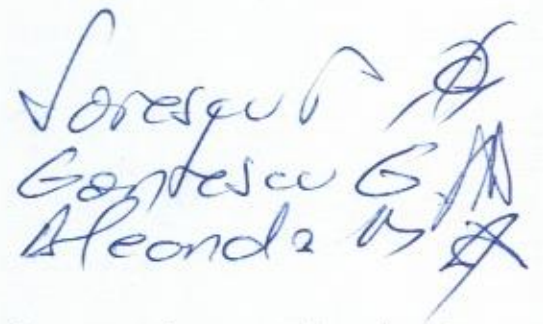 Sorescu P
Gontescu G.
Aleonda M